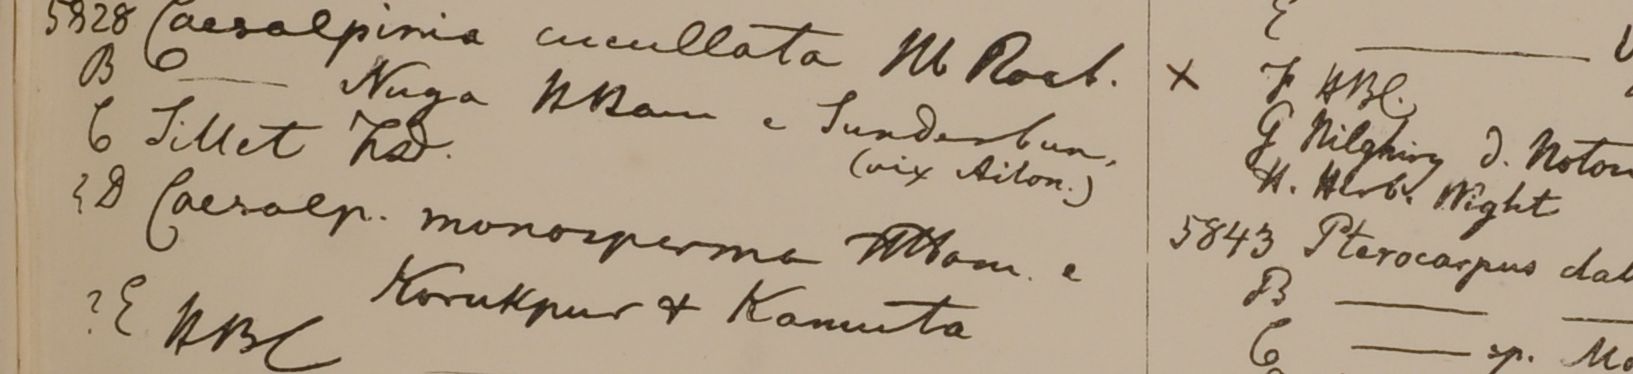 5828 Caesalpinia cucullata M Roxb.
B —— Nuga HHam e Sunderbun,
C Sillet FdS. (vix Aiton.)
?D Caesalp. monosperma HHam. e
Korukpur & Kamuta
?E HBC
E ——
× F HBC.
G Nilghiry D. Noton
H. Herb. Wight
5843 Pterocarpus dal
B —— ——
C —— sp. Mo